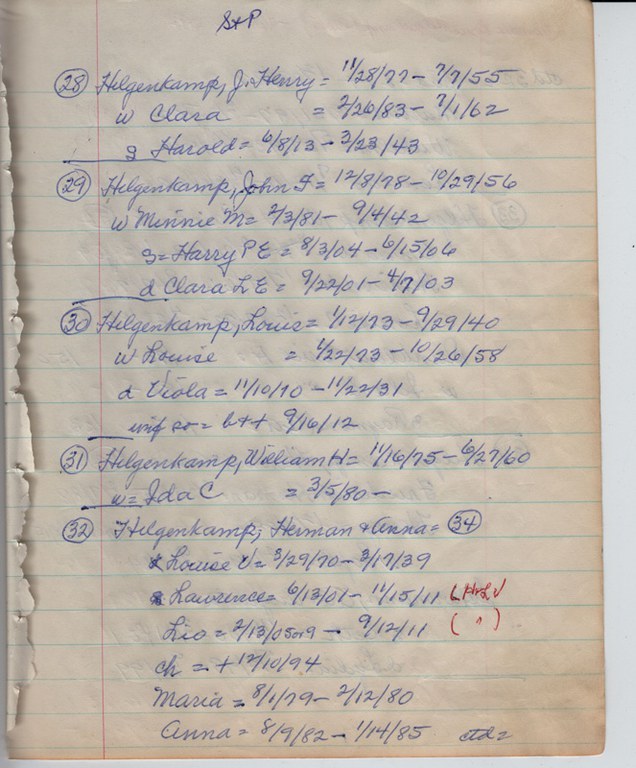 S+P
(28) Hilgenkamp, J. Henry = 11/28/77 - 7/7/55
w Clara = 2/26/83 - 7/1/62
s Harold = 6/8/13 - 3/23/43
(29) Hilgenkamp, John F = 12/8/78 - 10/29/56
w Minnie M = 2/3/81 - 9/4/42
s = Harry P E = 8/3/04 - 6/15/06
d Clara L E = 9/22/01 - 4/7/03
(30) Hilgenkamp, Louis = 1/12/73 - 9/29/40
w Louise = 1/22/73 - 10/26/58
d Viola = 11/10/10 - 11/22/31
inf so = b++ 9/16/12
(31) Hilgenkamp, William H = 11/16/75 - 6/27/60
w = Ida C = 3/5/80 -
(32) Hilgenkamp, Herman & Anna = (34)
Louise V = 3/29/70 - 3/17/39
s Lawrence = 6/13/01 - 11/15/11
Lio = 2/13/05or9 - 9/12/11 ( " )
ch = + 12/10/94
Maria = 8/1/79 - 2/12/80
Anna = 8/9/82 - 1/14/85 ctd =